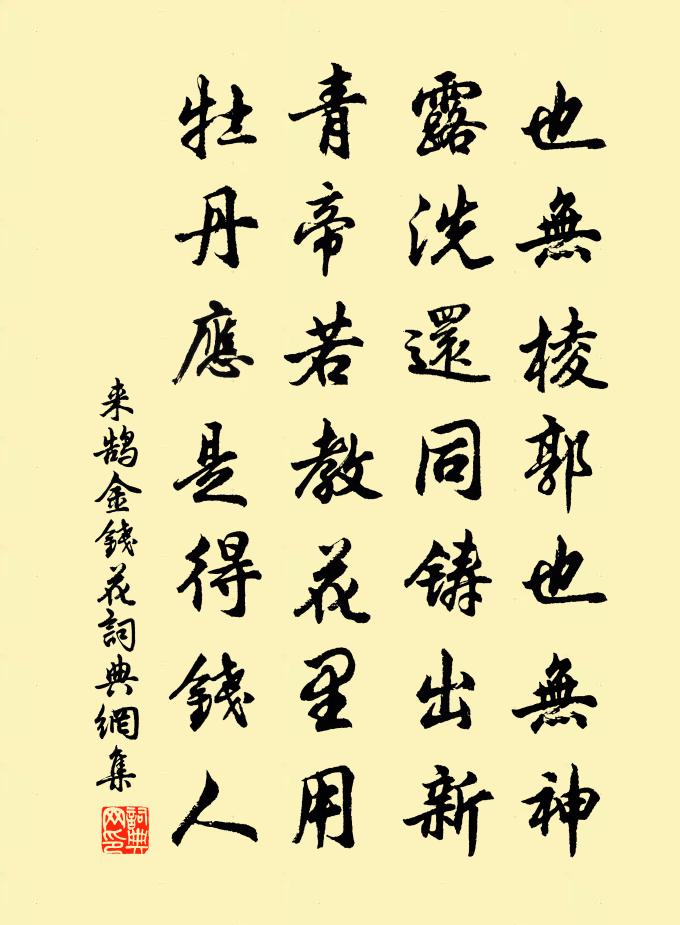 也無棱郭也無神
露洗還同鑄出新
青帝若教花里用
牡丹應是得錢人
来鵠金錢花詞典網集
詞典网印